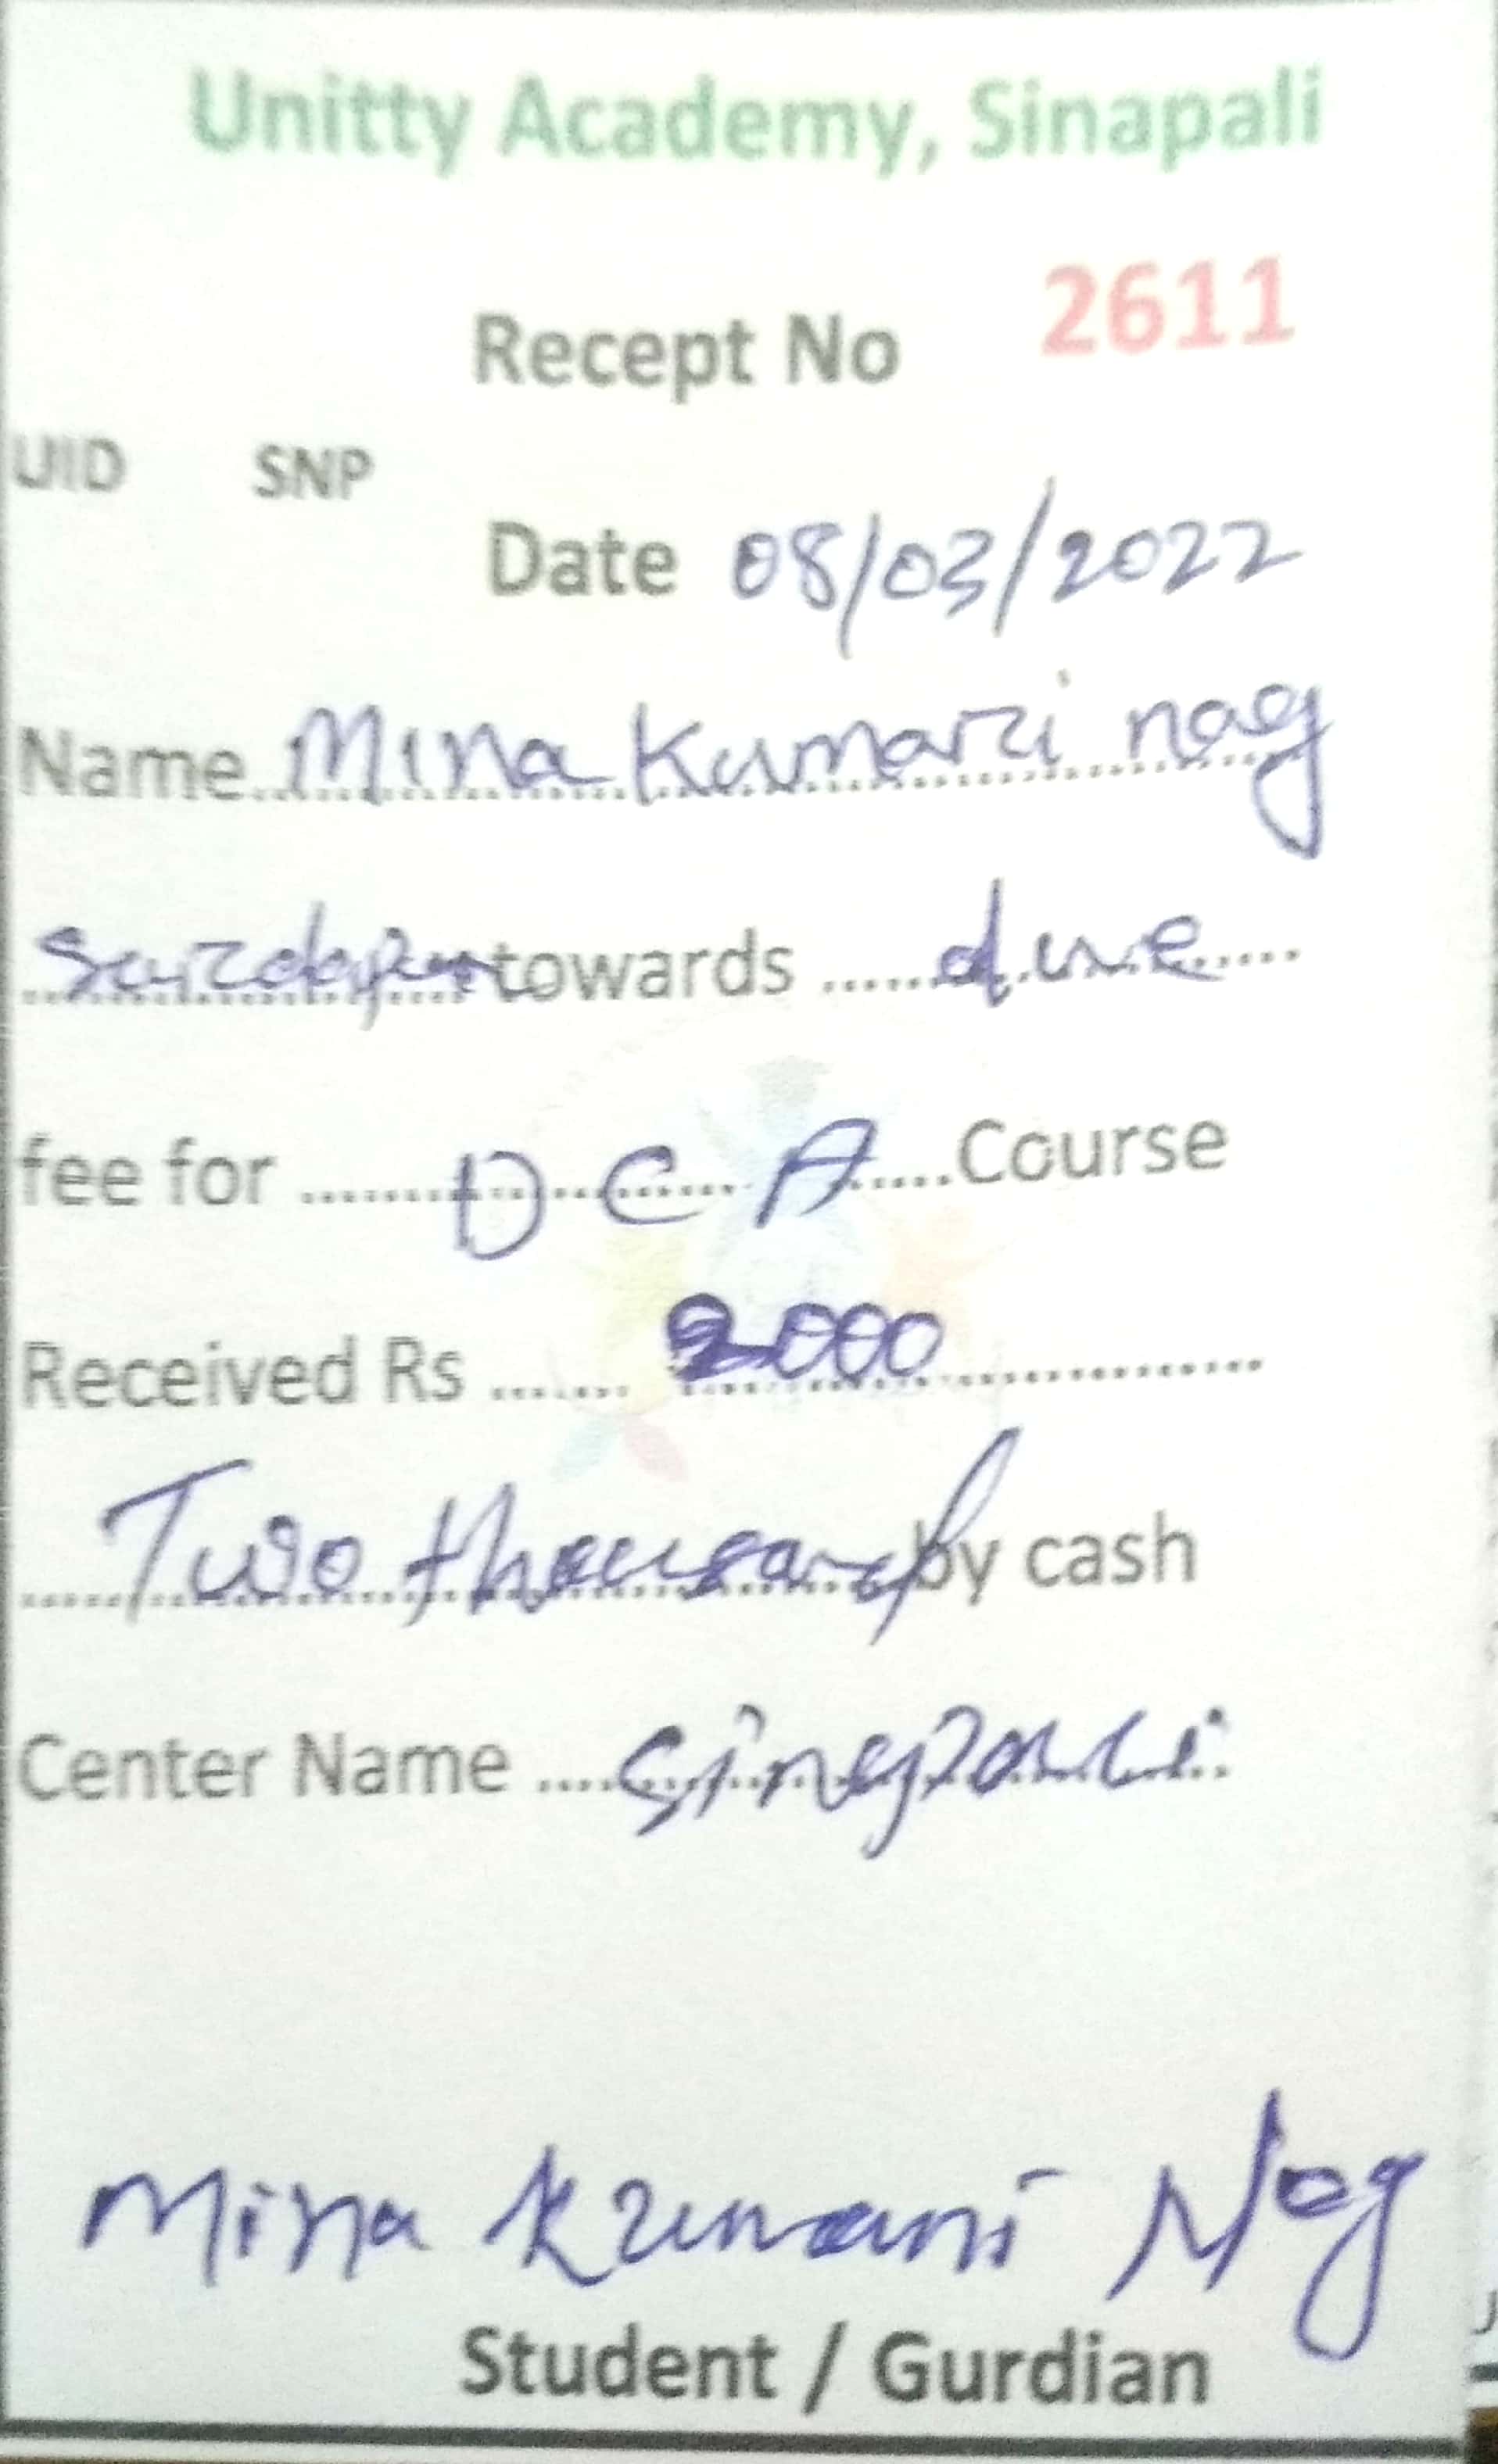 Unitty Academy, Sinapali
Recept No 2611
UID SNP
Date 08/03/2022
Name Mina Kumari nag
towards due
fee for D C A Course
Received Rs 2000
Two thousand by cash
Center Name Sinapali
Mina Kumari Nag
Student / Gurdian